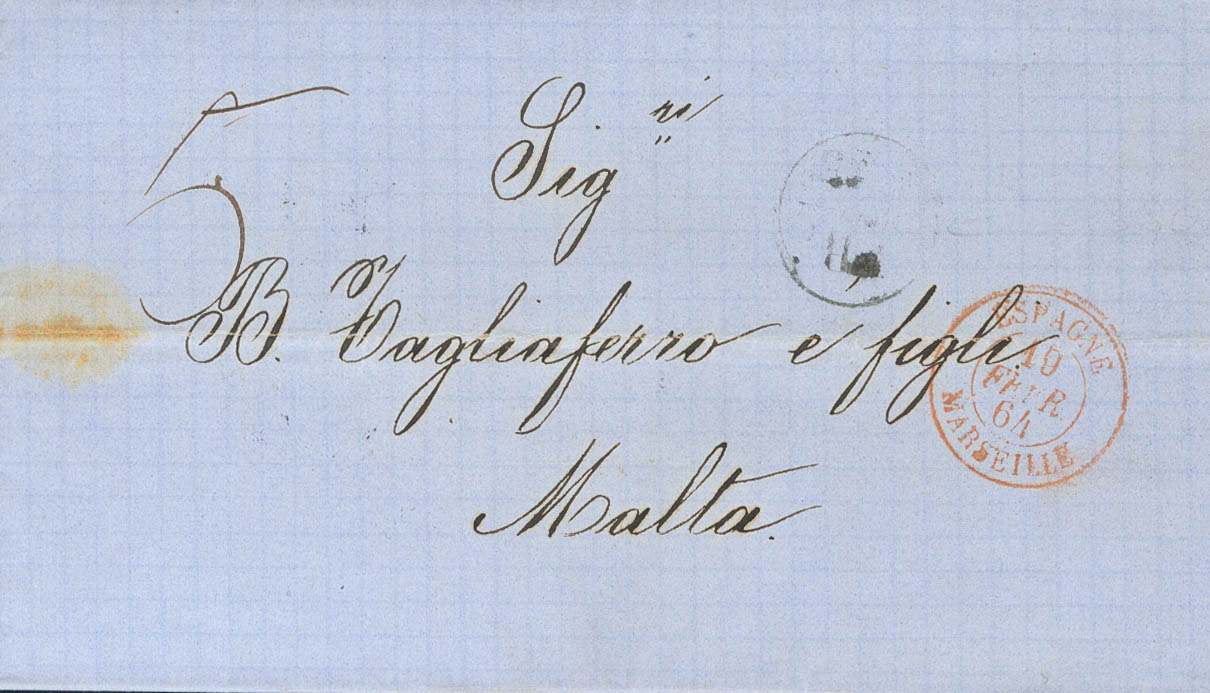 5
Sig ri
B. Tagliaferro e figli.
Malta.
ESPAGNE
19
FEVR.
64
MARSEILLE